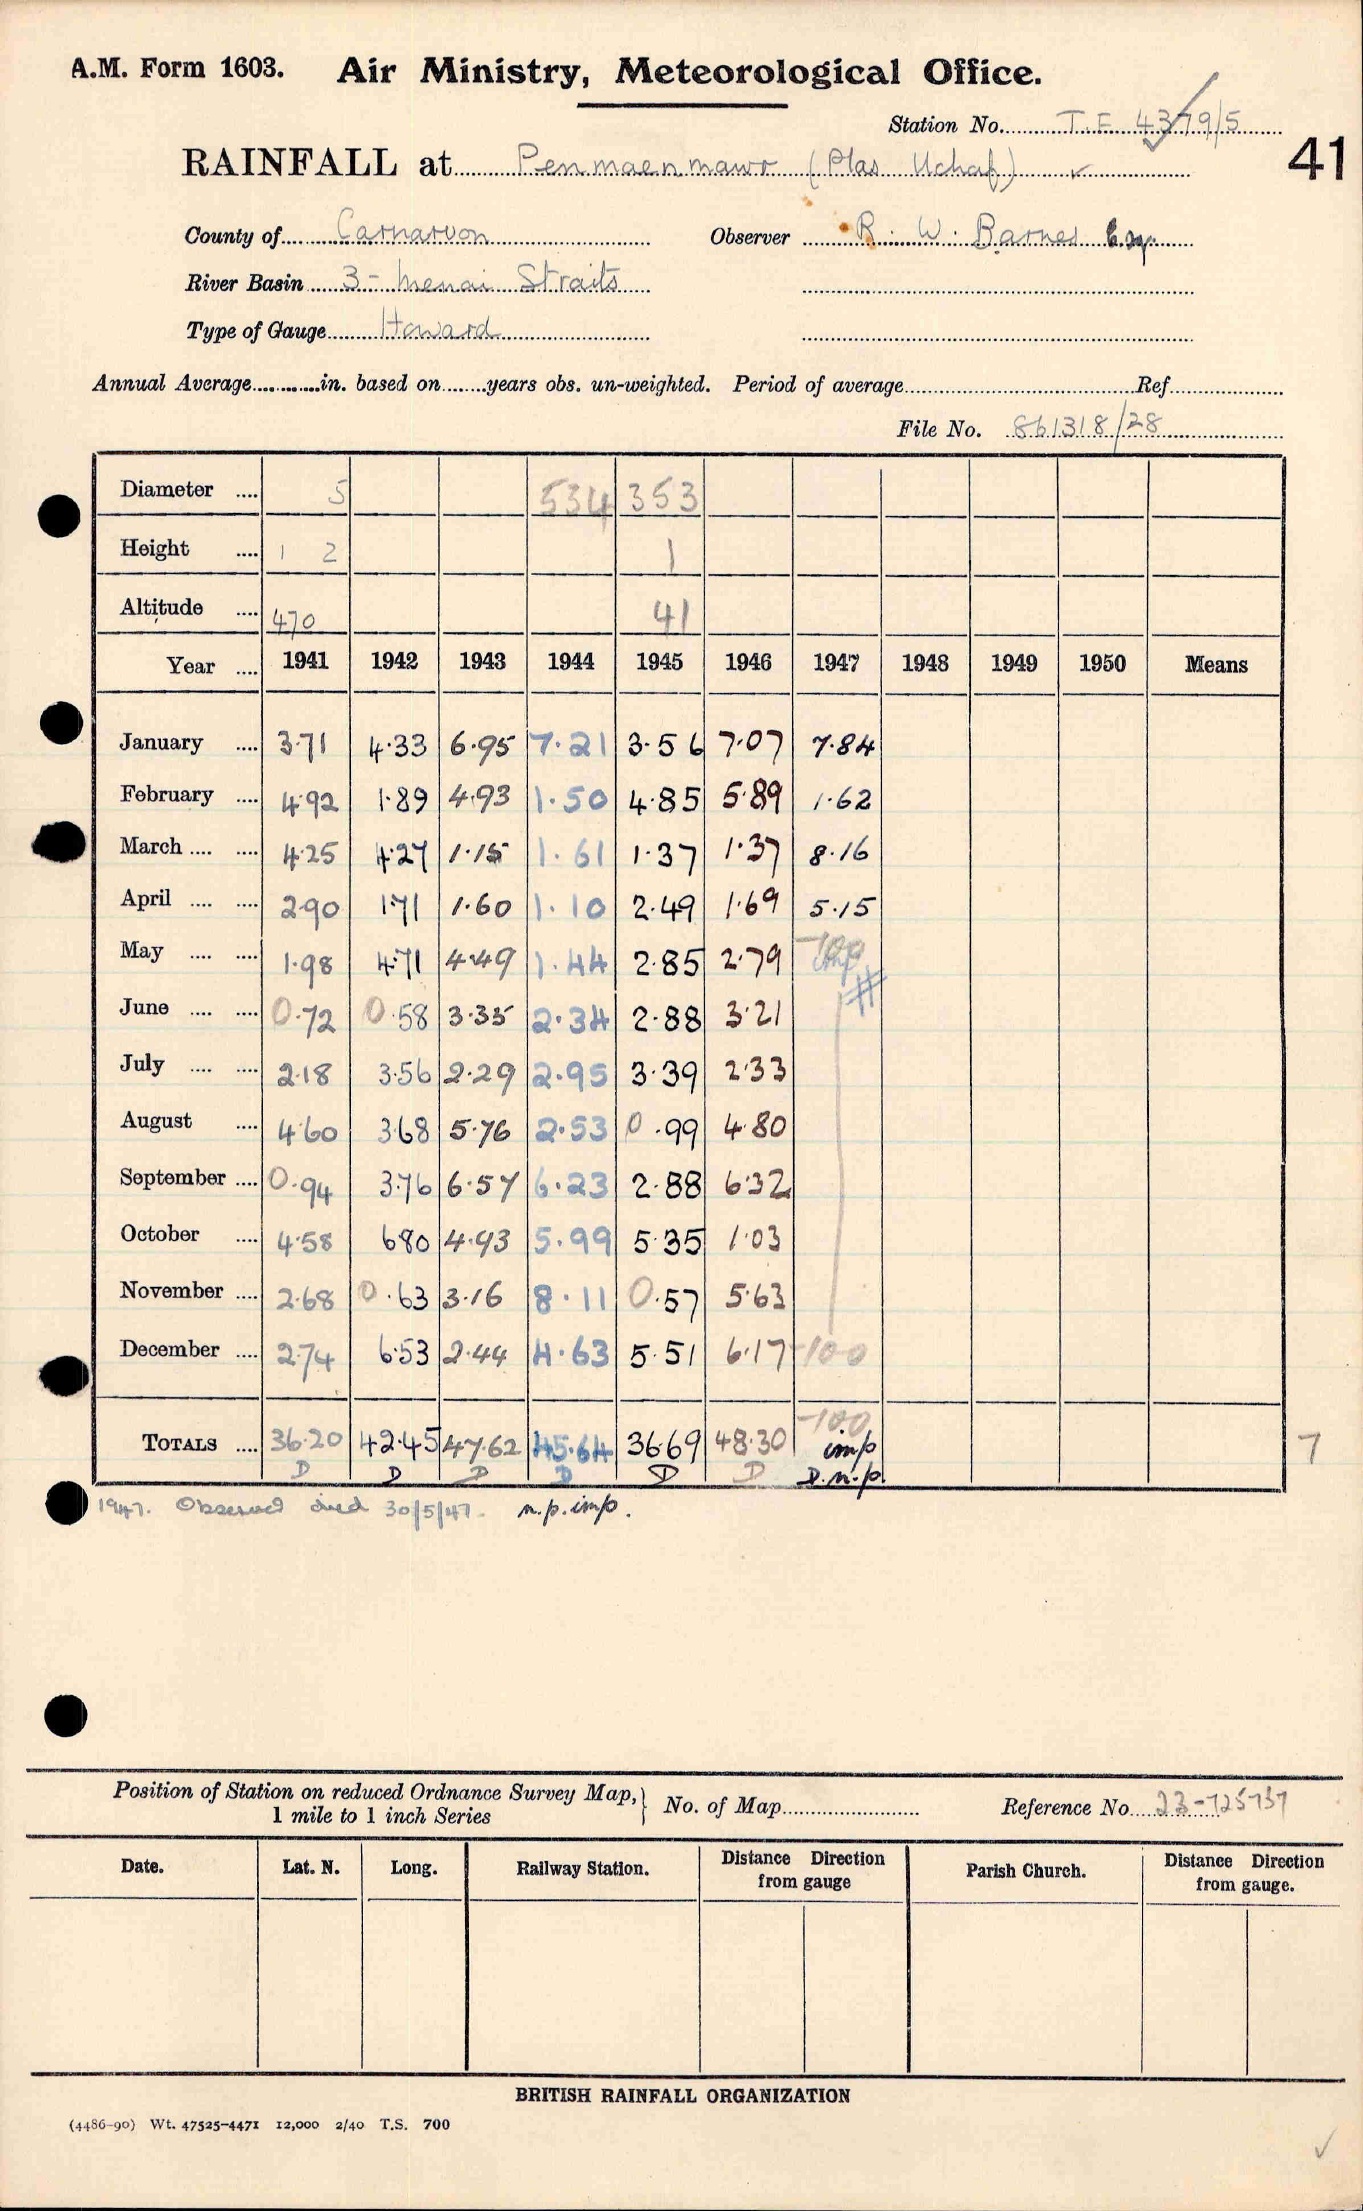 A.M. Form 1603. Air Ministry, Meteorological Office.
Station No. T.F 4379/5
41
RAINFALL at Penmaenmawr (Plas Uchaf) ✓
County of Carnarvon Observer R. W. Barnes Esq.
River Basin 3- Menai Straits
Type of Gauge Howard
Annual Average............in. based on.......years obs. un-weighted. Period of average Ref
File No. 861318/28
Diameter .... 5 534 353
Height .... 1 2 1
Altitude .... 470 41
Year .... 1941 1942 1943 1944 1945 1946 1947 1948 1949 1950 Means
January .... 3.71 4.33 6.95 7.21 3.56 7.07 7.84
February .... 4.92 1.89 4.93 1.50 4.85 5.89 1.62
March .... .... 4.25 4.27 1.15 1.61 1.37 1.37 8.16
April .... .... 2.90 1.71 1.60 1.10 2.49 1.69 5.15
May .... .... 1.98 4.71 4.49 1.44 2.85 2.79 -100 imp
June .... .... 0.72 0.58 3.35 2.34 2.88 3.21
July .... .... 2.18 3.56 2.29 2.95 3.39 2.33
August .... 4.60 3.68 5.76 2.53 0.99 4.80
September .... 0.94 3.76 6.57 6.23 2.88 6.32
October .... 4.58 6.80 4.93 5.99 5.35 1.03
November .... 2.68 0.63 3.16 8.11 0.57 5.63
December .... 2.74 6.53 2.44 4.63 5.51 6.17 -100
-100
TOTALS .... 36.20 42.45 47.62 45.64 36.69 48.30 imp 7
D D D D D D D.n.p.
1947. Observer died 30/5/47. n.p. imp.
Position of Station on reduced Ordnance Survey Map,
1 mile to 1 inch Series
No. of Map Reference No. 23-725757
Date. Lat. N. Long. Railway Station. Distance Direction from gauge Parish Church. Distance Direction from gauge.
BRITISH RAINFALL ORGANIZATION
(4486-90) Wt. 47525-4471 12,000 2/40 T.S. 700